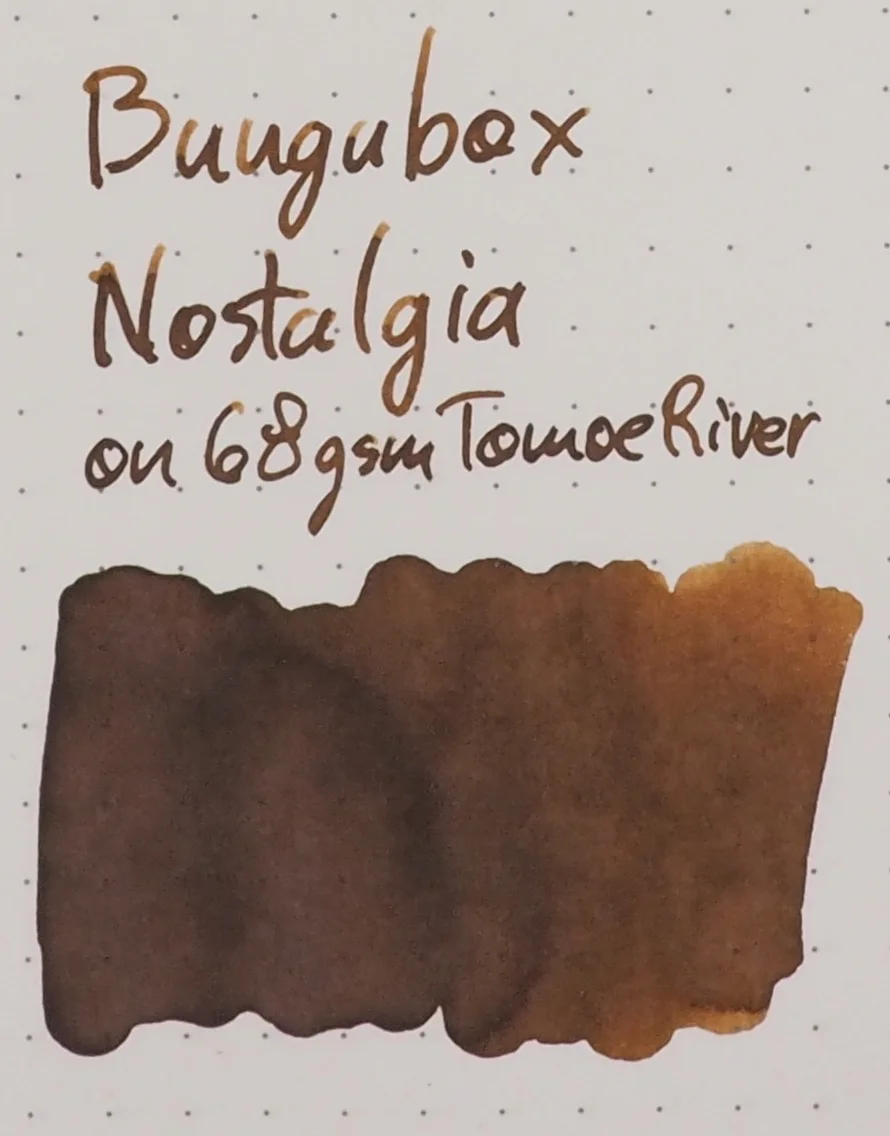 Bungubox
Nostalgia
on 68gsm Tomoe River